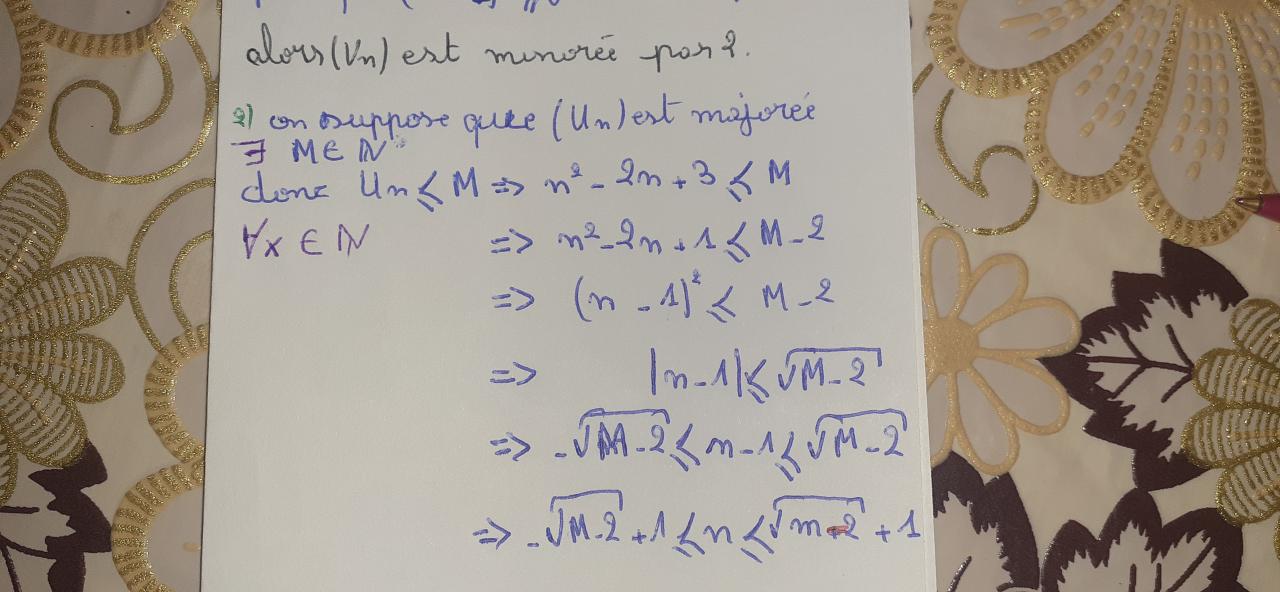 alors (Vn) est minorée par 2.
2) on suppose que (Un) est majorée
∃ M ∈ ℕ
donc Un ⩽ M => n² - 2n + 3 ⩽ M
∀x ∈ ℕ => n² - 2n + 1 ⩽ M - 2
=> (n - 1)² ⩽ M - 2
=> |n - 1| ⩽ √(M - 2)
=> -√(M - 2) ⩽ n - 1 ⩽ √(M - 2)
=> -√(M - 2) + 1 ⩽ n ⩽ √(m - 2) + 1